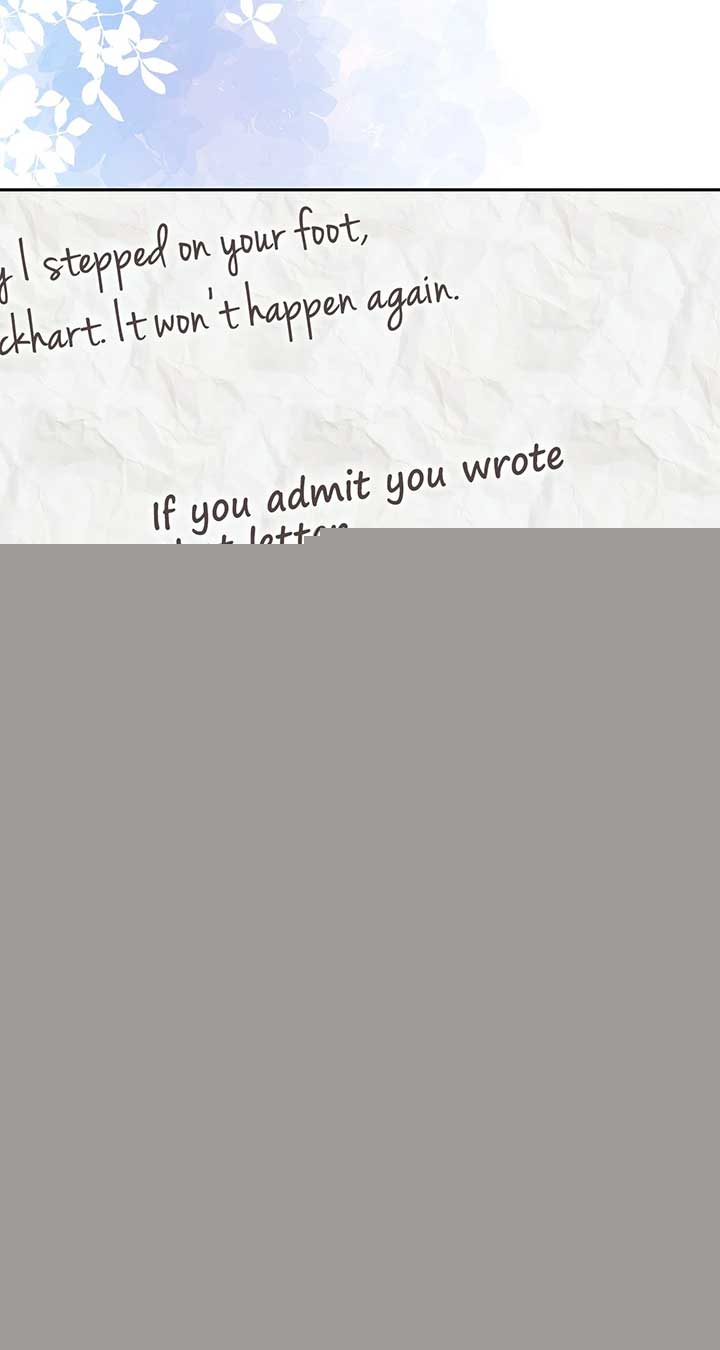 I stepped on your foot,
ckhart. It won't happen again.
If you admit you wrote
letter